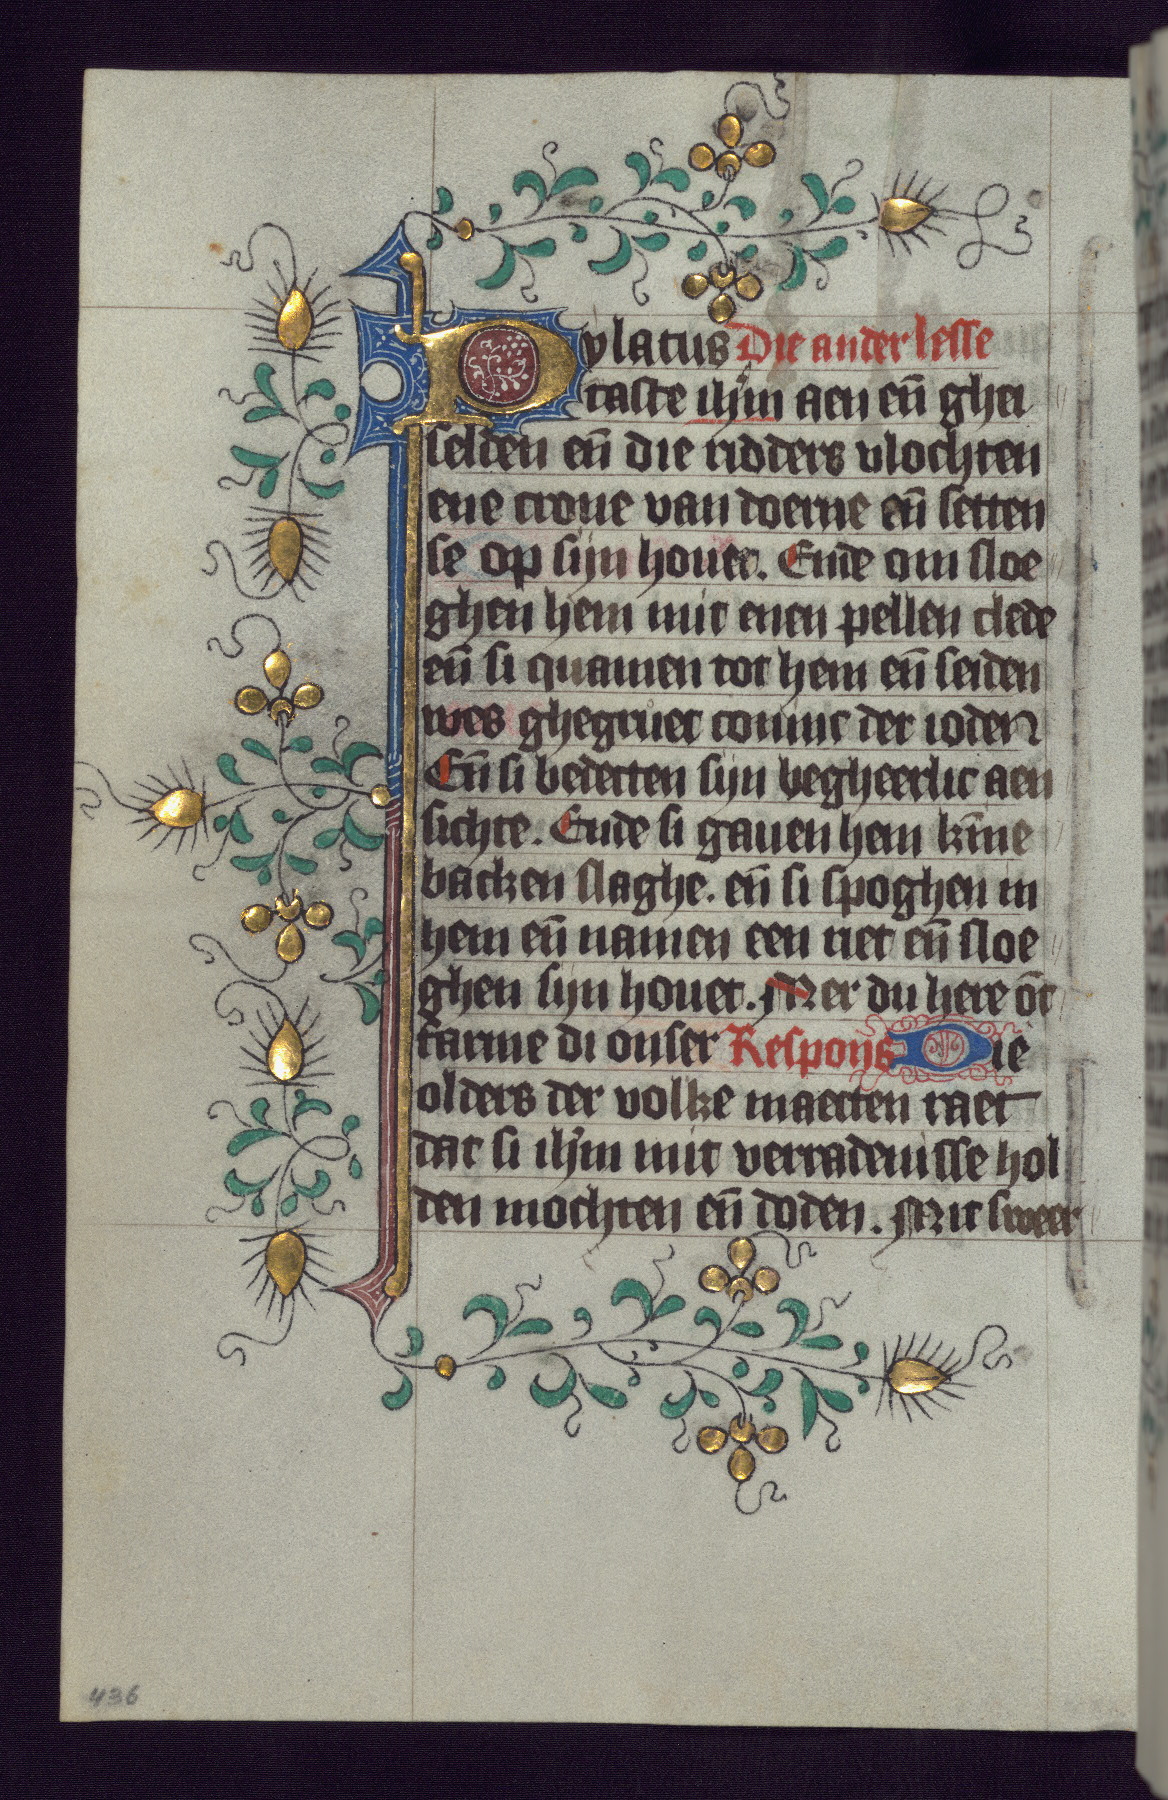 Pylatus Die ander lesse
taste ih̄m aen en̄ ghei
selden en̄ die ridders vlochten
ene crone van doerne en̄ setten
se op sijn houet. Ende om sloe
ghen hem mit enen pellen clede
en̄ si quamen tot hem en̄ seiden
wes ghegruet coninc der ioden
En̄ si bedecten sijn begheerlic aen
sichte. Ende si gauen hem kīne
backen slaghe. en̄ si spoghen in
hem en̄ namen een riet en̄ sloe
ghen sijn houet. Mer du here ōt
farme di onser Respons Die
olders der volke maecten raet
dat si ih̄m mit verradenisse hol
den mochten en̄ doden. Mit sweer
436